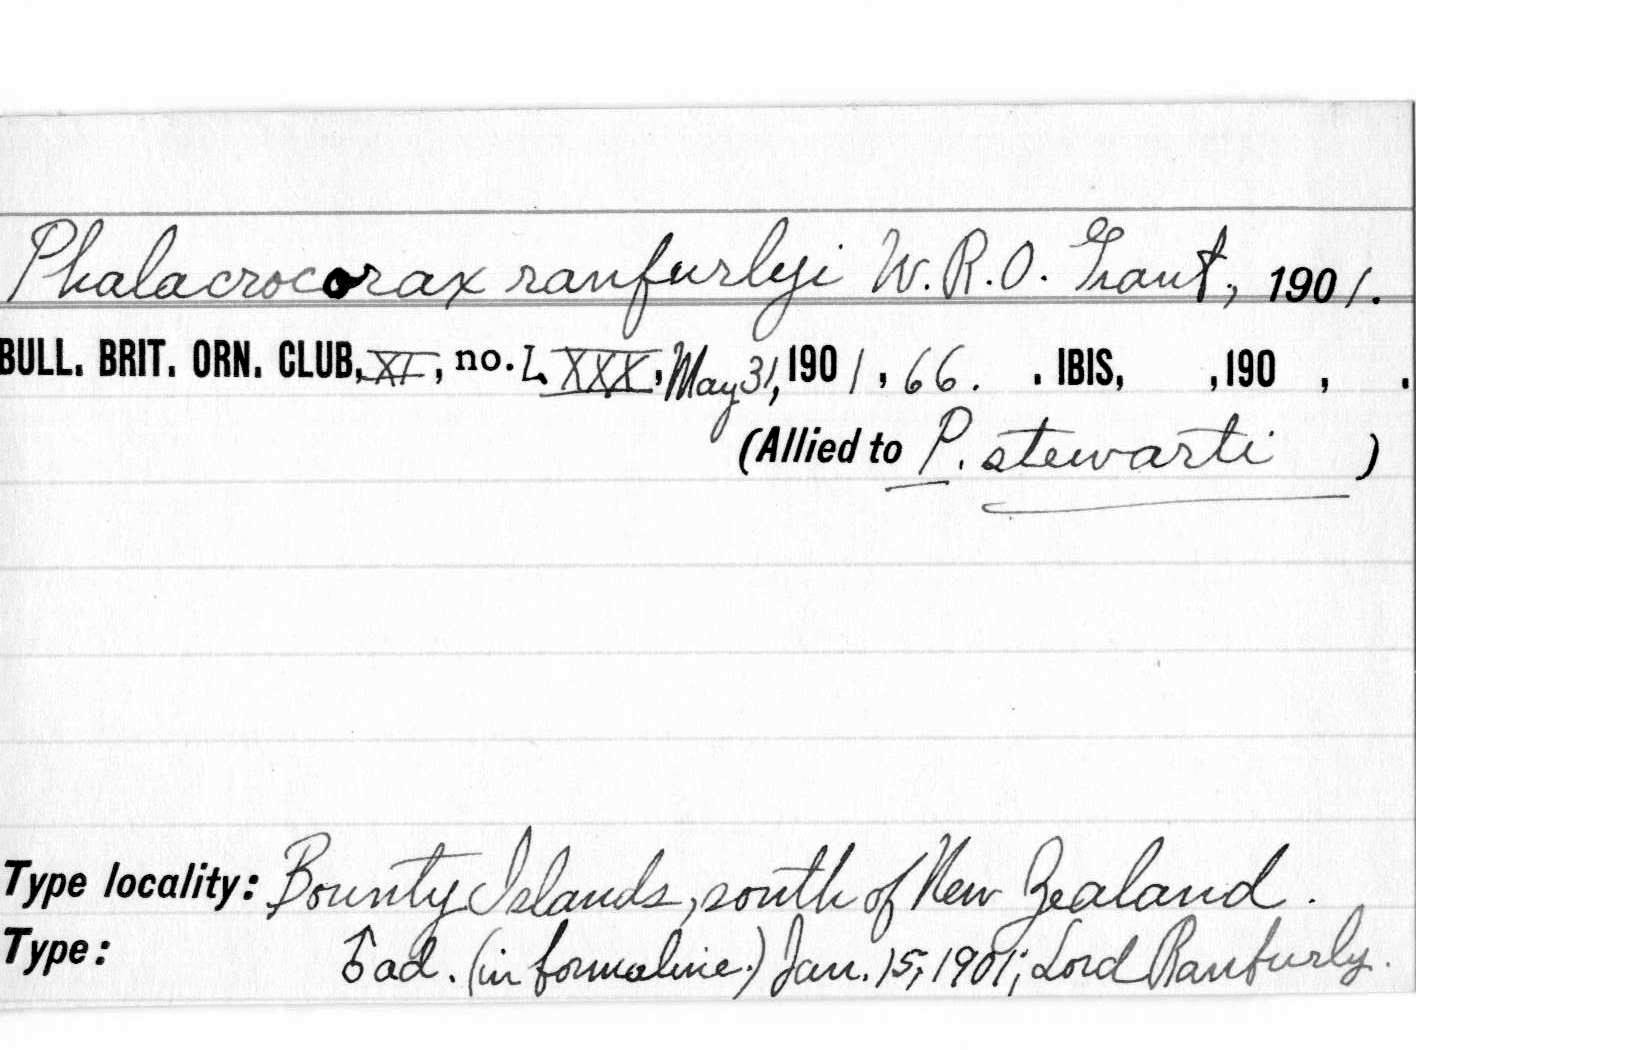 Phalacrocorax ranfurlyi W. R. O. Grant, 1901.
BULL. BRIT. ORN. CLUB, XI, no. LXXX, May 31, 1901, 66. . IBIS, ,190 , .
(Allied to P. stewarti )
Type locality: Bounty Islands, south of New Zealand.
Type: ♂ ad. (in formaline.) Jan. 15, 1901; Lord Ranfurly.